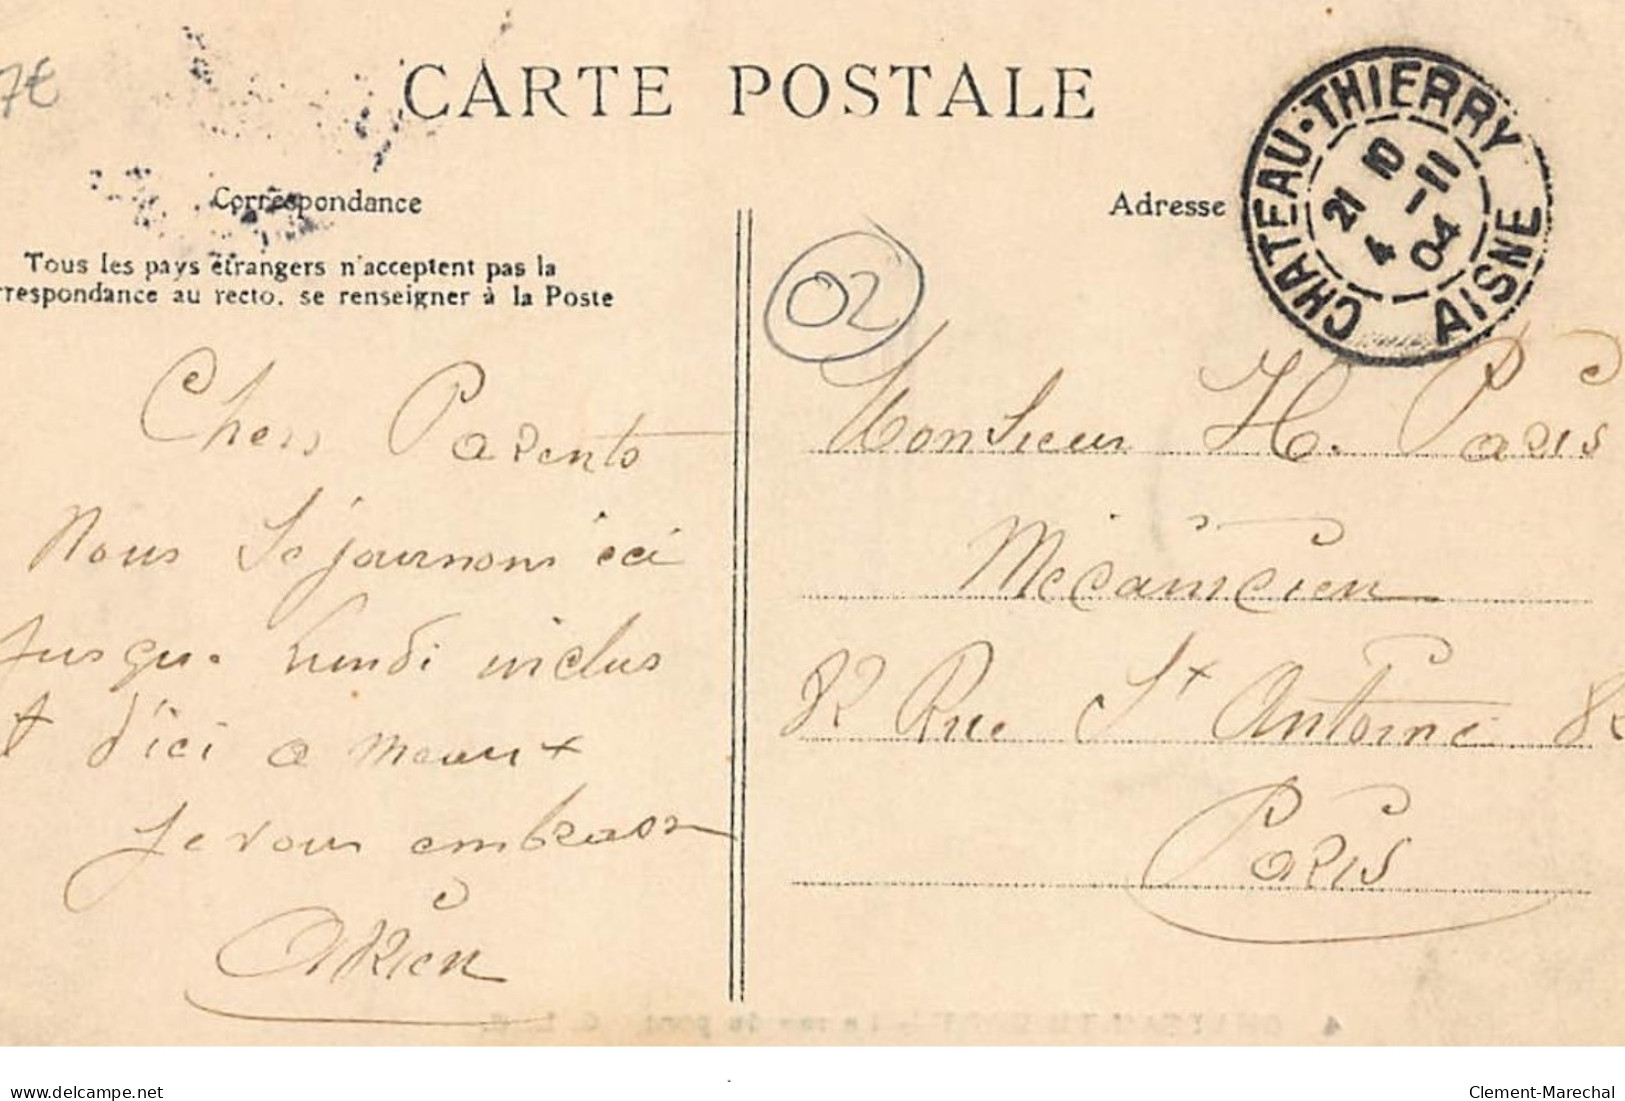 7€
CARTE POSTALE
CHATEAU-THIERRY
21 10
4 -11
04
AISNE
Correspondance
Adresse
Tous les pays étrangers n'acceptent pas la
rrespondance au recto, se renseigner à la Poste
02
Chers Parents
Nous Séjournons ici
Jusqu. lundi inclus
t d'ici a meaux
Je vous embrasse
Adrien
Monsieur H. Paris
Mécanicien
82 Rue St Antoine 82
Paris
delcampe.net
Clement-Marechal